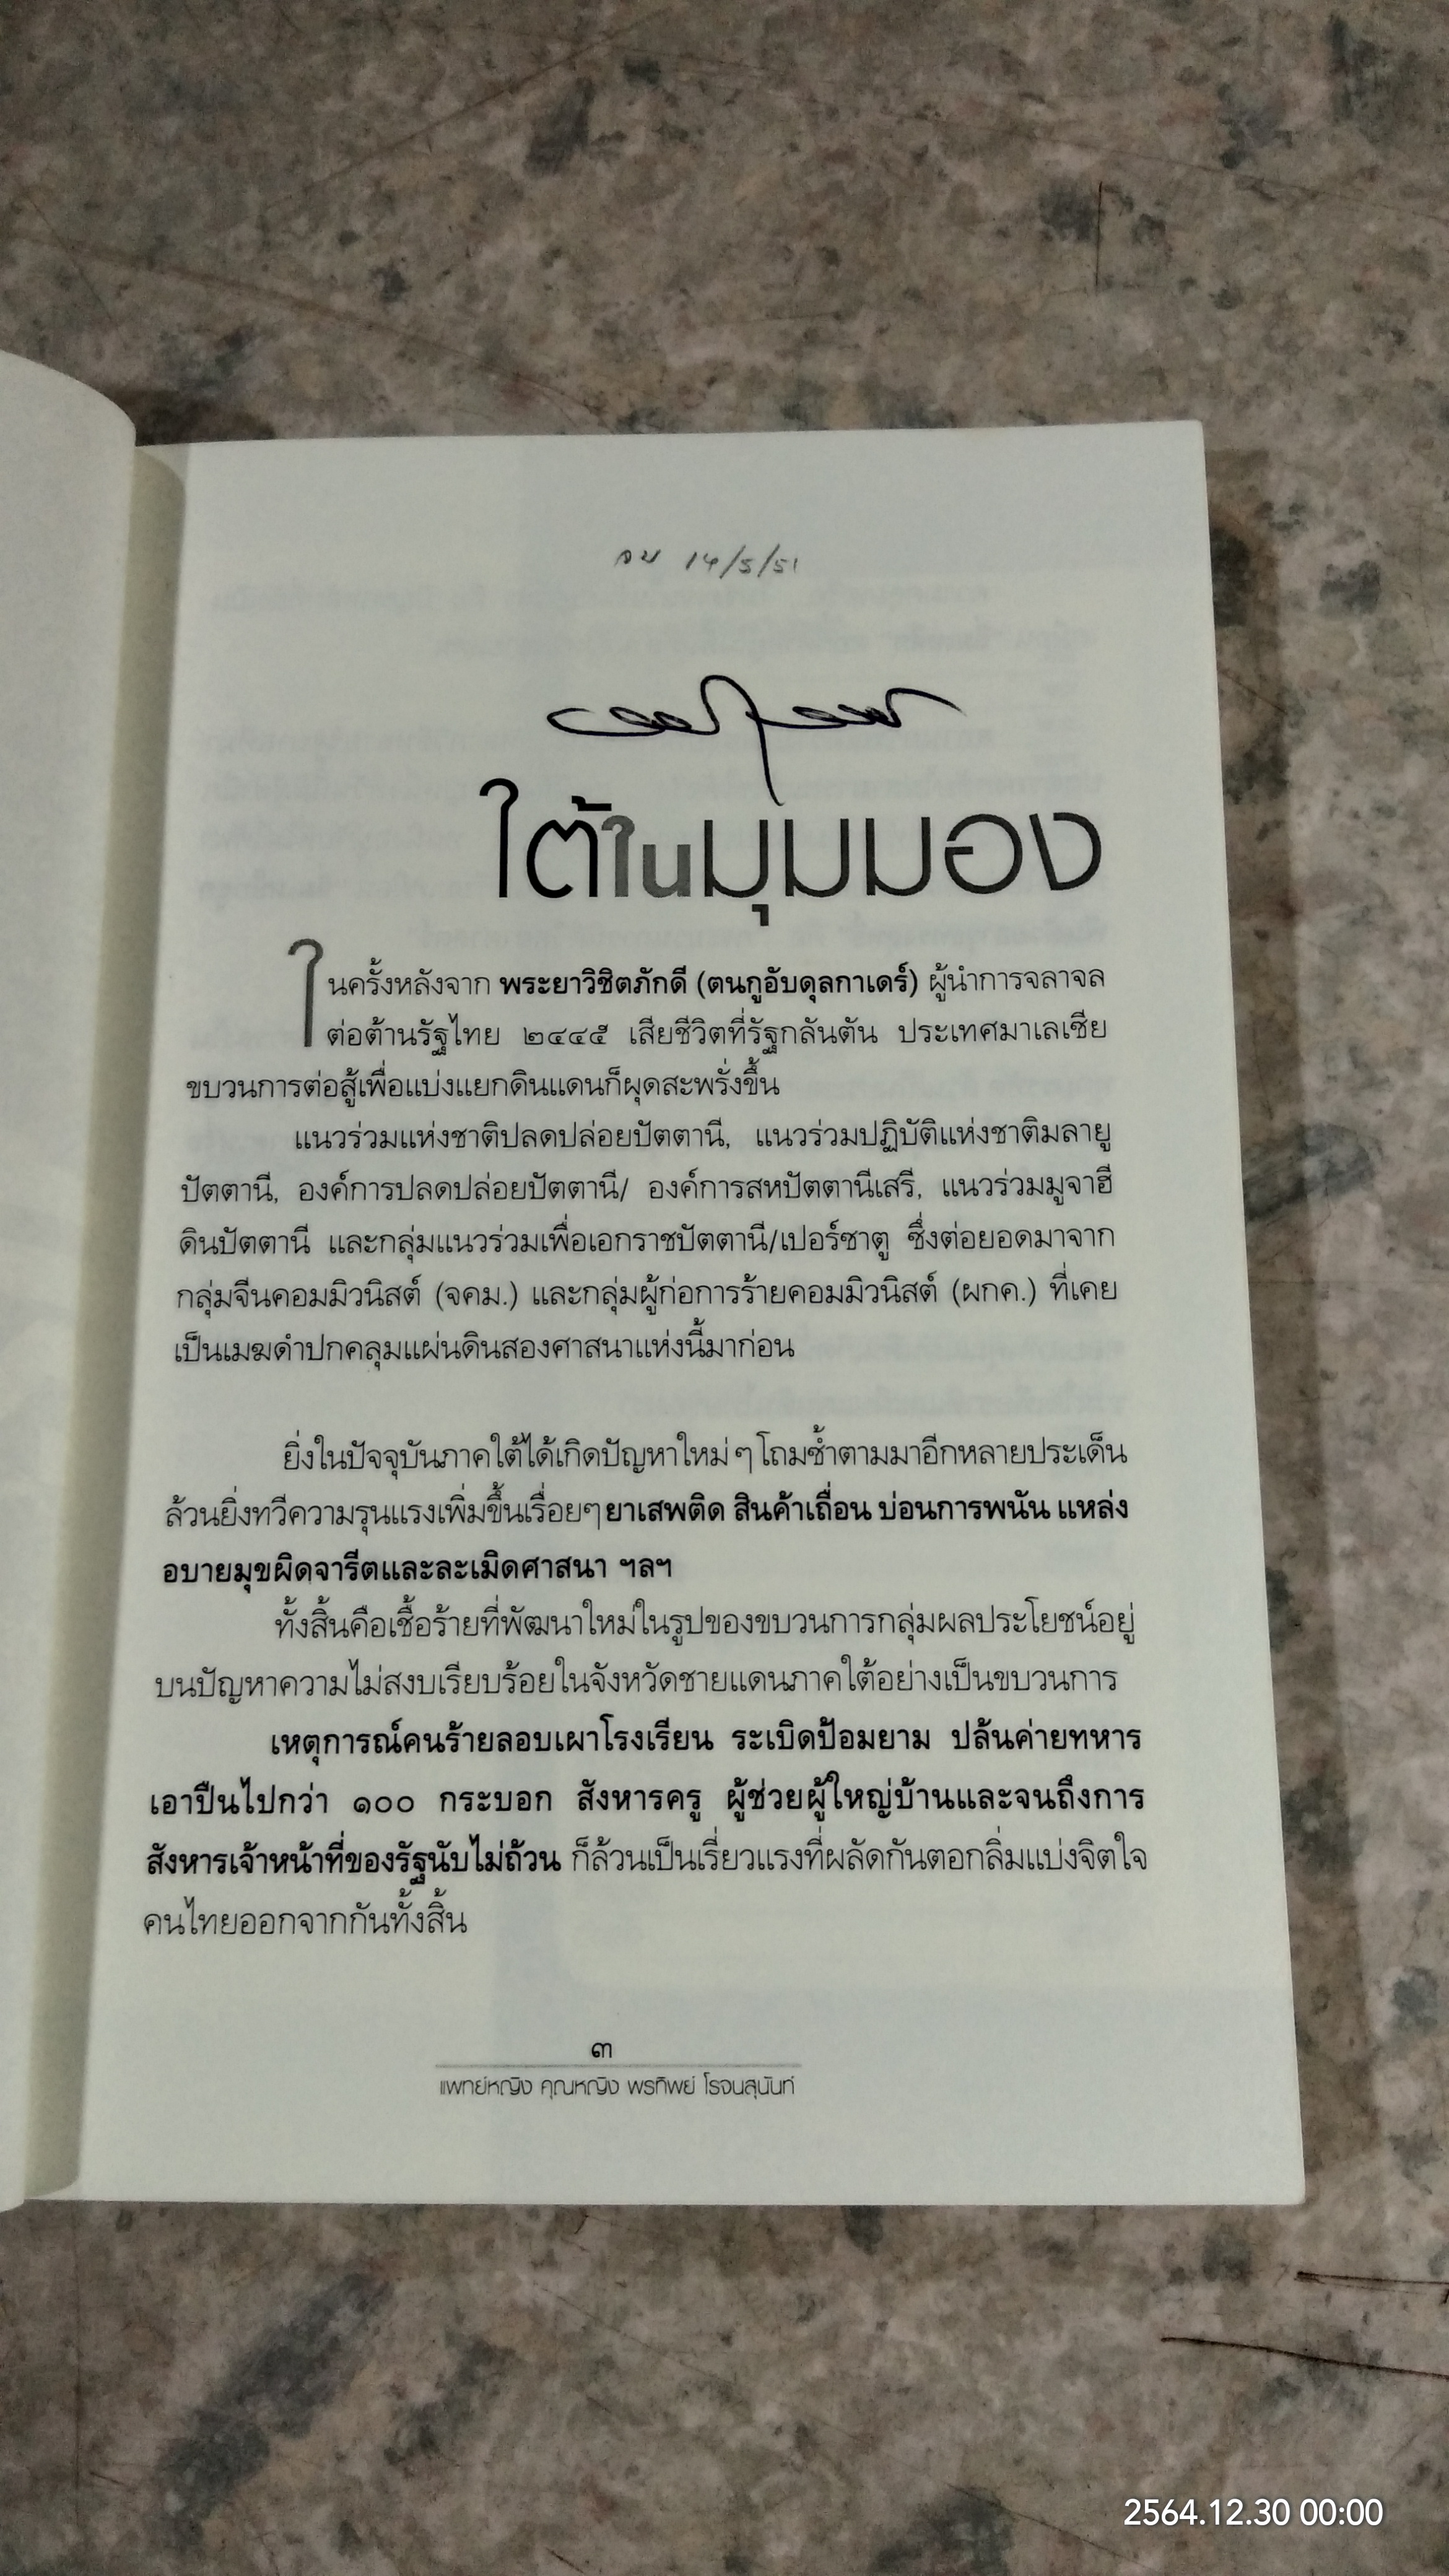 จบ 14/5/51
ใต้ในมุมมอง
ในครั้งหลังจาก พระยาวิชิตภักดี (ตนกูอับดุลกาเดร์) ผู้นำการจลาจล
ต่อต้านรัฐไทย ๒๔๔๕ เสียชีวิตที่รัฐกลันตัน ประเทศมาเลเซีย
ขบวนการต่อสู้เพื่อแบ่งแยกดินแดนก็ผุดสะพรั่งขึ้น
แนวร่วมแห่งชาติปลดปล่อยปัตตานี, แนวร่วมปฏิบัติแห่งชาติมลายู
ปัตตานี, องค์การปลดปล่อยปัตตานี/ องค์การสหปัตตานีเสรี, แนวร่วมมูจาฮี
ดินปัตตานี และกลุ่มแนวร่วมเพื่อเอกราชปัตตานี/เปอร์ซาตู ซึ่งต่อยอดมาจาก
กลุ่มจีนคอมมิวนิสต์ (จคม.) และกลุ่มผู้ก่อการร้ายคอมมิวนิสต์ (ผกค.) ที่เคย
เป็นเมฆดำปกคลุมแผ่นดินสองศาสนาแห่งนี้มาก่อน
ยิ่งในปัจจุบันภาคใต้ได้เกิดปัญหาใหม่ๆ โถมซ้ำตามมาอีกหลายประเด็น
ล้วนยิ่งทวีความรุนแรงเพิ่มขึ้นเรื่อยๆ ยาเสพติด สินค้าเถื่อน บ่อนการพนัน แหล่ง
อบายมุขผิดจารีตและละเมิดศาสนา ฯลฯ
ทั้งสิ้นคือเชื้อร้ายที่พัฒนาใหม่ในรูปของขบวนการกลุ่มผลประโยชน์อยู่
บนปัญหาความไม่สงบเรียบร้อยในจังหวัดชายแดนภาคใต้อย่างเป็นขบวนการ
เหตุการณ์คนร้ายลอบเผาโรงเรียน ระเบิดป้อมยาม ปล้นค่ายทหาร
เอาปืนไปกว่า ๑๐๐ กระบอก สังหารครู ผู้ช่วยผู้ใหญ่บ้านและจนถึงการ
สังหารเจ้าหน้าที่ของรัฐนับไม่ถ้วน ก็ล้วนเป็นเรี่ยวแรงที่ผลัดกันตอกลิ่มแบ่งจิตใจ
คนไทยออกจากกันทั้งสิ้น
๓
แพทย์หญิง คุณหญิง พรทิพย์ โรจนสุนันท์
2564.12.30 00:00